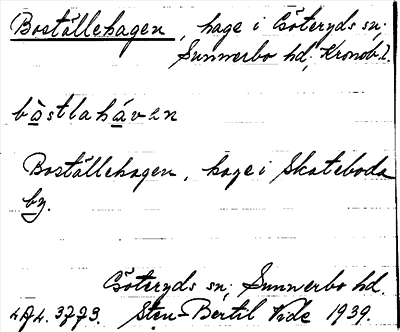 Boställehagen, hage i Göteryds sn;
Sunnerbo hd, Kronob. l.
bo̱stlahá̱ven
Boställehagen, hage i Skateboda
by.
Göteryds sn; Sunnerbo hd.
Sten-Bertil Vide 1939.